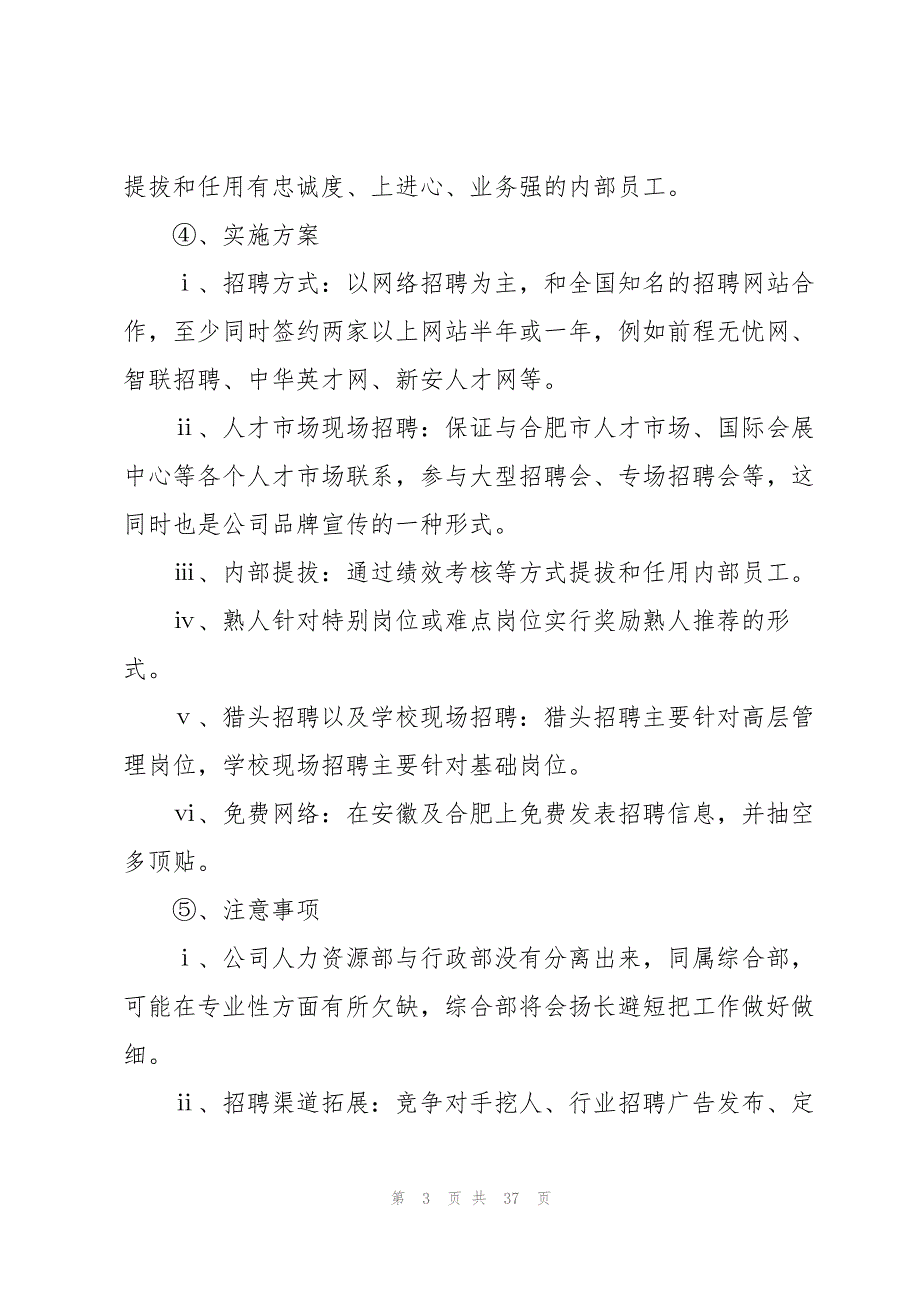 提拔和任用有忠诚度、上进心、业务强的内部员工。
④、实施方案
ⅰ、招聘方式：以网络招聘为主，和全国知名的招聘网站合
作，至少同时签约两家以上网站半年或一年，例如前程无忧网、
智联招聘、中华英才网、新安人才网等。
ⅱ、人才市场现场招聘：保证与合肥市人才市场、国际会展
中心等各个人才市场联系，参与大型招聘会、专场招聘会等，这
同时也是公司品牌宣传的一种形式。
ⅲ、内部提拔：通过绩效考核等方式提拔和任用内部员工。
ⅳ、熟人针对特别岗位或难点岗位实行奖励熟人推荐的形
式。
ⅴ、猎头招聘以及学校现场招聘：猎头招聘主要针对高层管
理岗位，学校现场招聘主要针对基础岗位。
ⅵ、免费网络：在安徽及合肥上免费发表招聘信息，并抽空
多顶贴。
⑤、注意事项
ⅰ、公司人力资源部与行政部没有分离出来，同属综合部，
可能在专业性方面有所欠缺，综合部将会扬长避短把工作做好做
细。
ⅱ、招聘渠道拓展：竞争对手挖人、行业招聘广告发布、定
第 3 页 共 37 页